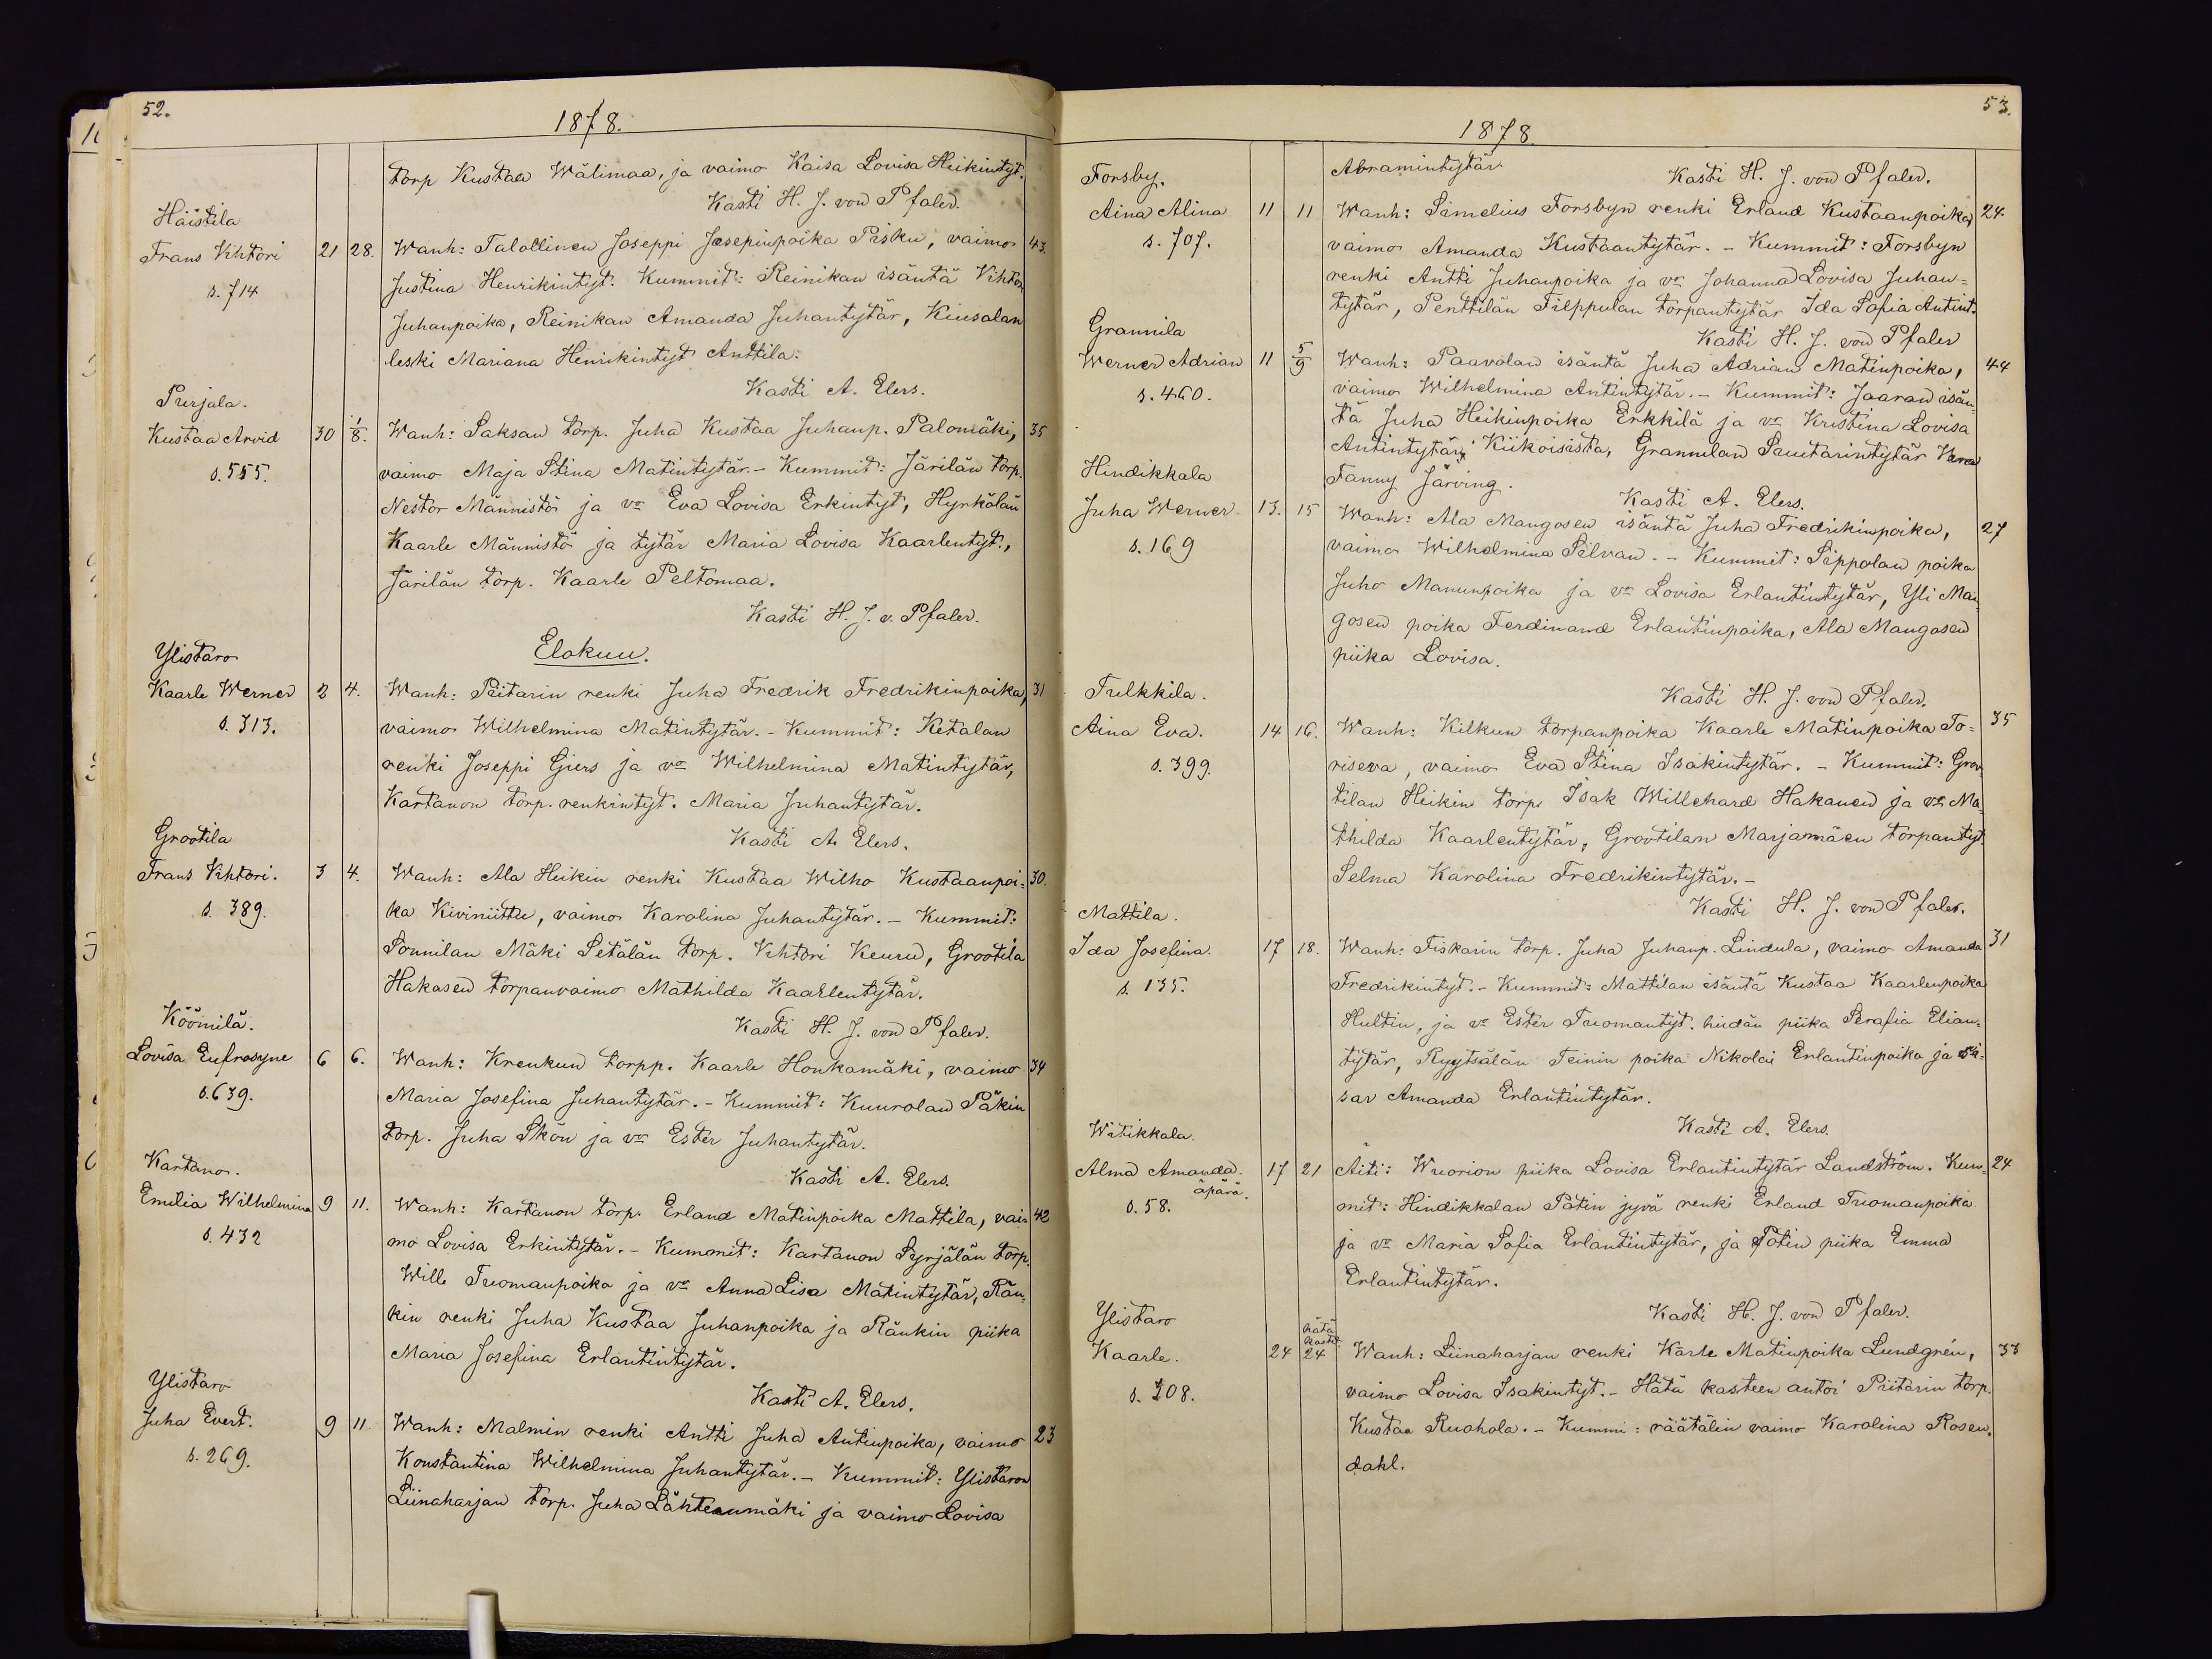 52.
1878.
torp Kustaa Wälimaa, ja vaimo Kaisa Lovisa Heikintyt.
Kasti H. J. von Pfaler.
Häistilä
Frans Vihtori 21 28. Wanh: Talollinen Joseppi Josepinpoika Pisku, vaimo 43.
s. 714 Justina Henrikintyt. Kummit: Reinikan isäntä Vihtori
Juhanpoika, Reinikan Amanda Juhantytär, Kiusalan
leski Mariana Henrikintyt Anttila.
Kasti A. Elers.
Purjala.
Kustaa Arvid 30 1/8. Wanh: Saksan torp. Juha Kustaa Juhanp. Palomäki, 35
s. 555. vaimo Maja Stina Matintytär. - Kummit: Järilän torp.
Nestor Männistö ja vo Eva Lovisa Erkintyt, Hyrkölän
Kaarle Männistö ja tytär Maria Lovisa Kaarlentyt.,
Järilän torp. Kaarle Peltomaa.
Kasti H. J. v. Pfaler.
Elokuu.
Ylistaro
Kaarle Werner 2 4. Wanh: Piitarin renki Juha Fredrik Fredrikinpoika, 31
s. 313. vaimo Wilhelmina Matintytär. - Kummit: Ketalan
renki Joseppi Giers ja vo Wilhelmina Matintytär,
Kartanon torp. renkintyt. Maria Juhantytär.
Kasti A. Elers.
Grootila
Frans Vihtori. 3 4. Wanh: Ala Heikin renki Kustaa Wilho Kustaanpoi= 30.
s. 389. ka Kiviniittu, vaimo Karolina Juhantytär. - Kummit:
Sonnilan Mäki Setälän torp. Vihtori Keuru, Grootila
Hakasen torpanvaimo Mathilda Kaarlentytär.
Kasti H. J. von Pfaler.
Köömilä.
Lovisa Eufrosyne 6 6. Wanh: Krenkun torpp. Kaarle Honkamäki, vaimo 34
s. 639. Maria Josefina Juhantytär. - Kummit: Kuurolan Päkin
torp. Juha Skön ja vo Ester Juhantytär.
Kasti A. Elers.
Kartano.
Emilia Wilhelmina 9 11. Wanh: Kartanon torp. Erland Matinpoika Mattila, vai= 42
s. 432 mo Lovisa Erkintytär. - Kummit: Kartanon Syrjälän torp.
Wille Tuomanpoika ja vo Anna Lisa Matintytär, Rän=
kin renki Juha Kustaa Juhanpoika ja Ränkin piika
Maria Josefina Erlantintytär.
Kasti A. Elers.
Ylistaro
Juha Evert. 9 11. Wanh: Malmin renki Antti Juha Antinpoika, vaimo 23
s. 269. Konstantina Wilhelmina Juhantytär. - Kummit: Ylistaron
Liinaharjan torp. Juha Lähteenmäki ja vaimo Lovisa
53.
1878.
Abramintytär.
Kasti H. J. von Pfaler.
Forsby.
Aina Alina 11 11 Wanh: Simelius Forsbyn renki Erland Kustaanpoika, 24.
s. 707. vaimo Amanda Kustaantytär. - Kummit: Forsbyn
renki Antti Juhanpoika ja vo Johanna Lovisa Juhan=
tytär, Penttilän Filppulan torpantytär Ida Sofia Antint.
Kasti H. J. von Pfaler
Grannila
Werner Adrian 11 5/9 Wanh: Paavolan isäntä Juha Adrian Matinpoika, 44
s. 460. vaimo Wilhelmina Antintytär. - Kummit: Jaaran isän=
tä Juha Heikinpoika Erkkilä ja vo Kristina Lovisa
Antintytär, Kiikoisista, Grannilan Suutarintytär
Fanny Järving.
Kasti A. Elers.
Hindikkala
Juha Werner 13. 15 Wanh: Ala Mangosen isäntä Juha Fredrikinpoika, 27
s. 169 vaimo Wilhelmina Silvan. - Kummit: Sippolan poika
Juho Manunpoika ja vo Lovisa Erlantintytär, Yli Man=
gosen poika Ferdinand Erlantinpoika, Ala Mangosen
piika Lovisa.
Kasti H. J. von Pfaler.
Tulkkila.
Aina Eva. 14 16. Wanh: Kilkun torpanpoika Kaarle Matinpoika To= 35
s. 399. riseva, vaimo Eva Stina Isakintytär. - Kummit: Groo
tilan Heikin torp. Isak Willehard Hakanen ja vo Ma=
thilda Kaarlentytär, Grootilan Marjamäen torpantyt.
Selma Karolina Fredrikintytär. -
Kasti H. J. von Pfaler.
Mattila.
Ida Josefina. 17 18. Wanh: Fiskarin torp. Juha Juhanp. Lindula, vaimo Amanda 31
s. 135. Fredrikintyt. - Kummit: Mattilan isäntä Kustaa Kaarlenpoika
Hultin, ja vo Ester Tuomantyt. hiidän piika Serafia Elian=
tytär, Ryytsälän Teinin poika Nikolai Erlantinpoika ja si=
sar Amanda Erlantintytär.
Kasti A. Elers.
Witikkala.
Alma Amanda. 17 21 Äiti: Wuorion piika Lovisa Erlantintytär Landström. Kum= 24
äpärä.
s. 58. mit: Hindikkalan Potin jyvä renki Erland Tuomanpoika
ja vo Maria Sofia Erlantintytär, ja Potin piika Emma
Erlantintytär.
Kasti H. J. von Pfaler.
Ylistaro
hätä
kaste
Kaarle. 24 24 Wanh: Liinaharjan renki Karle Matinpoika Lundgrén, 33
s. 208. vaimo Lovisa Isakintyt. - Hätä kasteen antoi Piitarin torp.
Kustaa Ruohola. - Kummi: räätälin vaimo Karolina Rosen=
dahl.